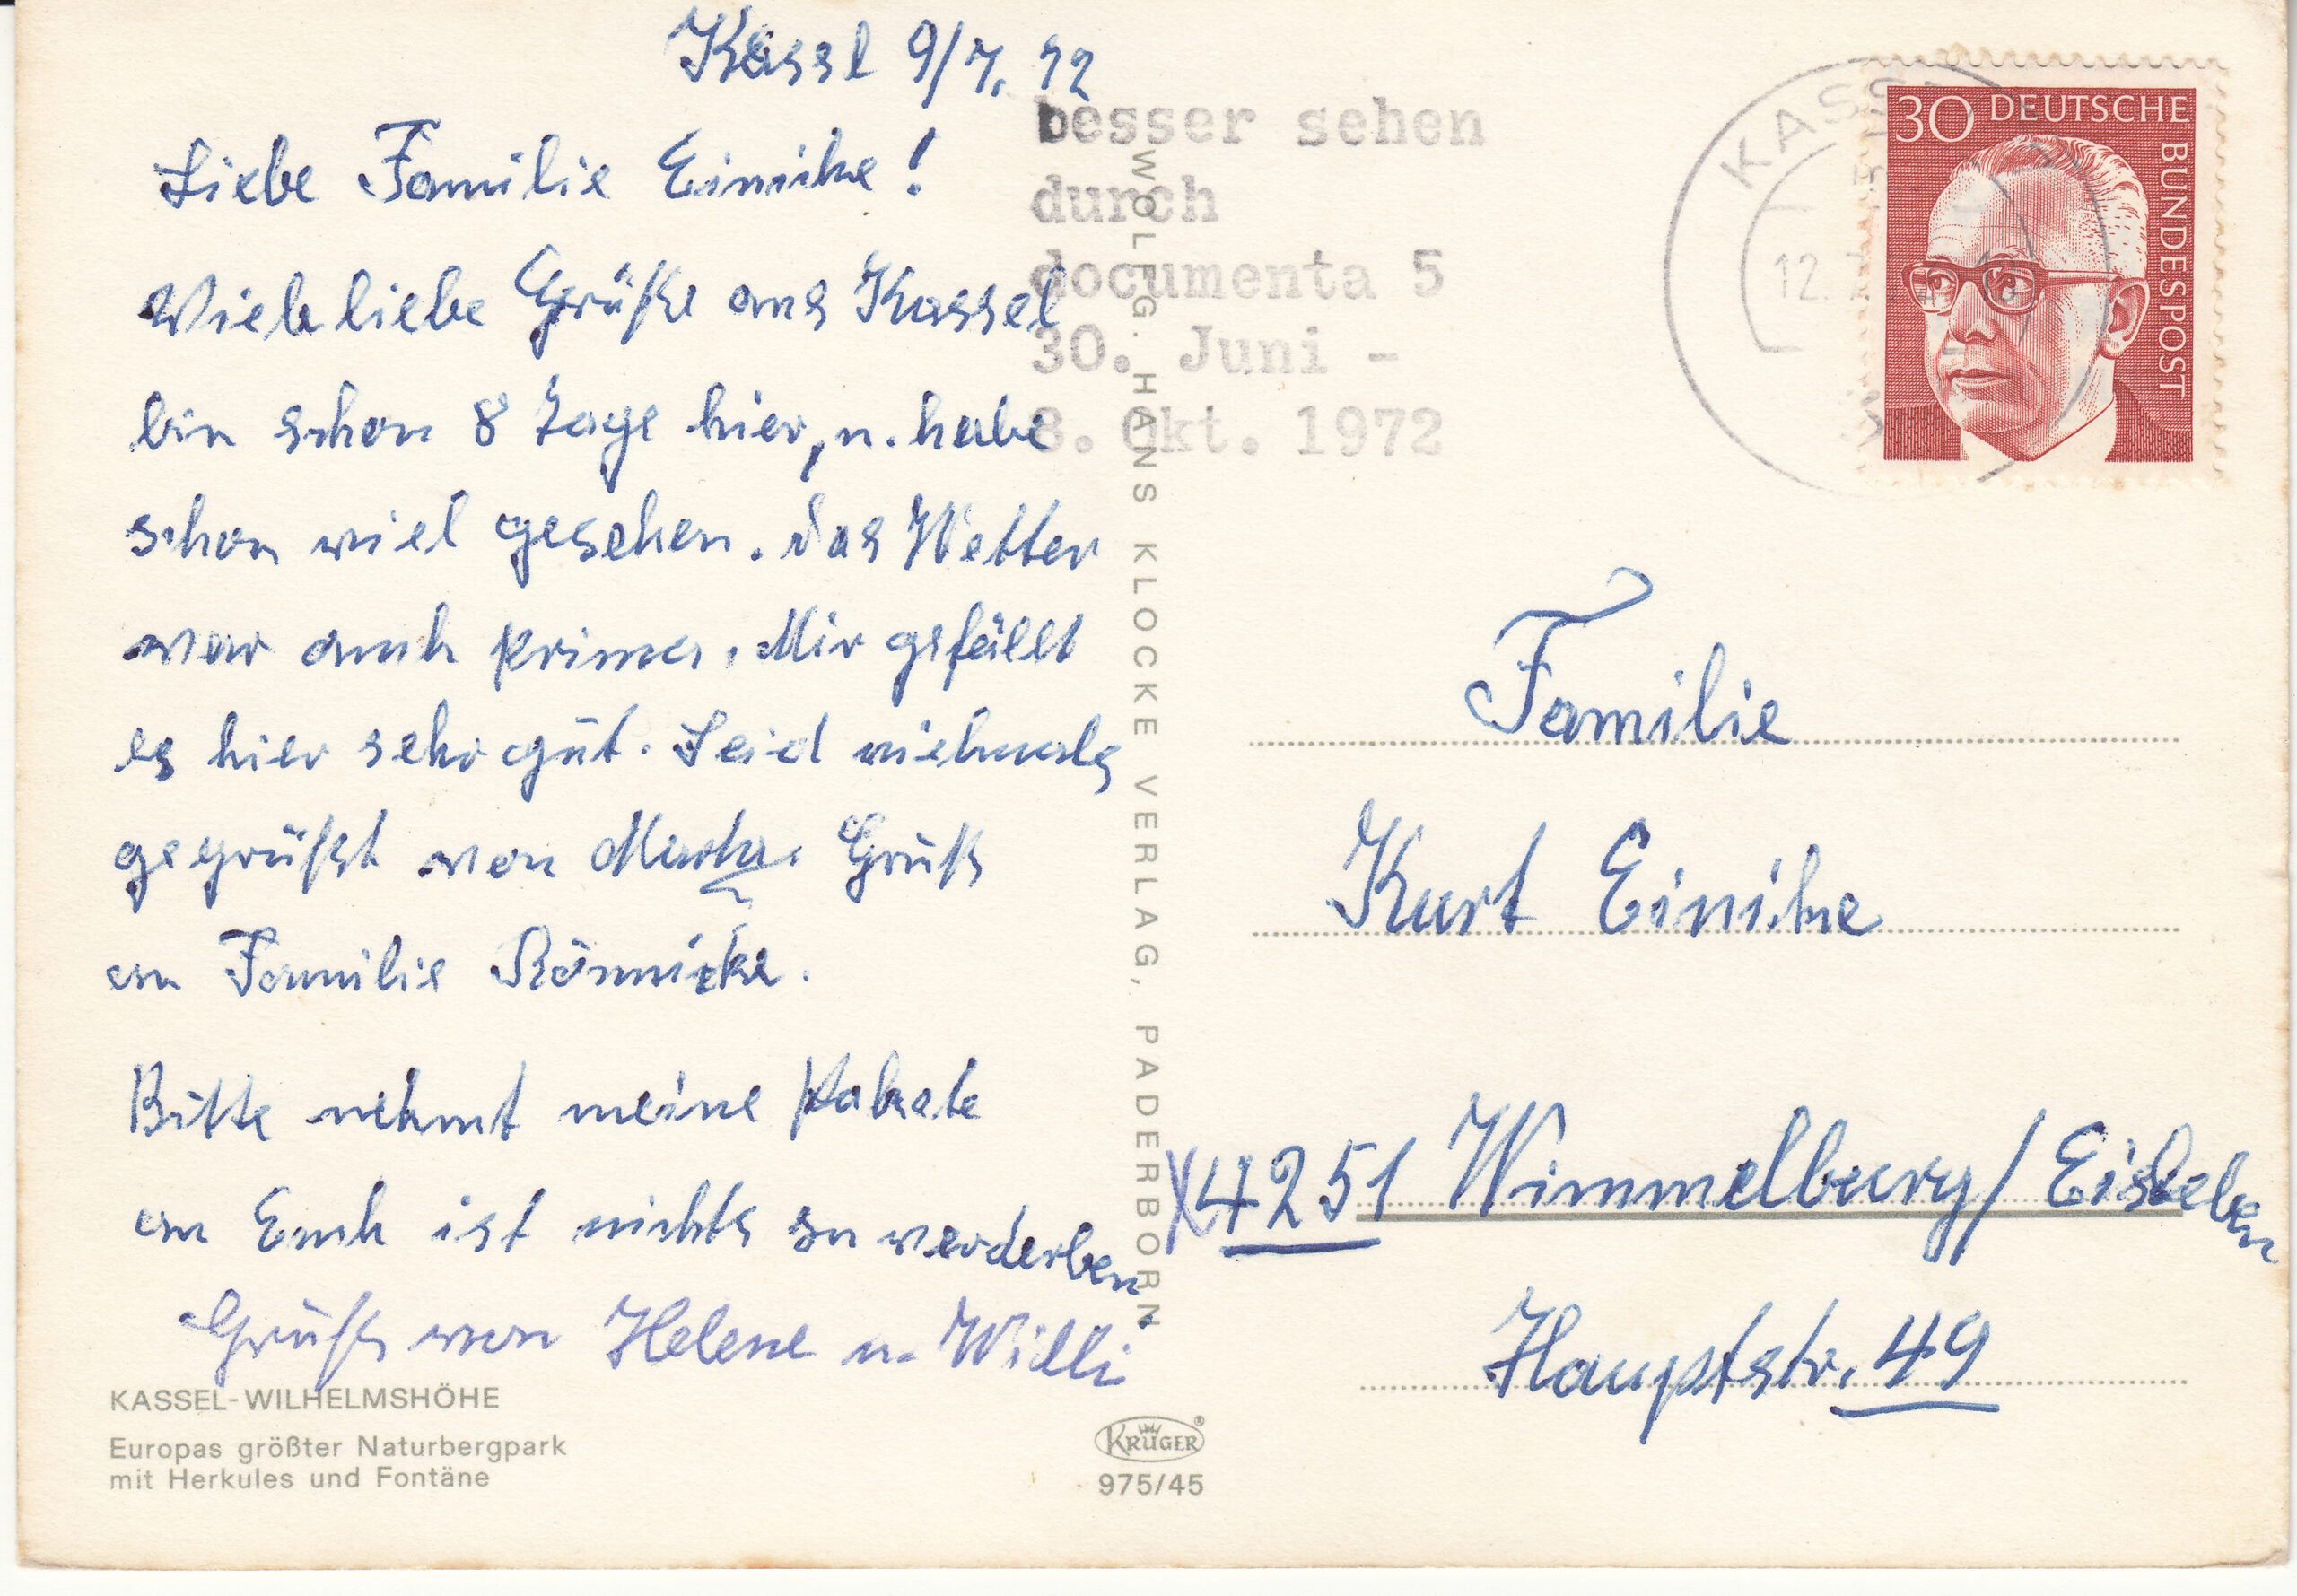 Kassl 9/7. 72
Liebe Familie Einike!
Viele liebe Grüße aus Kassel
bin schon 8 Tage hier, u. habe
schon viel gesehen. das Wetter
war auch prima. Mir gefällt
es hier sehr gut. Seid vielmals
gegrüßt von Gruß
an Familie Rönnicke.
Bitte nehmt meine Pakete
an Euch ist nichts zu verderben
Grüße von Helene u. Willi
KASSEL-WILHELMSHÖHE
Europas größter Naturbergpark
mit Herkules und Fontäne
WOLFG. HANS KLOCKE VERLAG, PADERBORN
KRÜGER ®
975/45
besser sehen
durch
documenta 5
30. Juni -
8. Okt. 1972
KASSEL
12.7.
30 DEUTSCHE
BUNDESPOST
Familie
Kurt Einike
X4251 Wimmelburg/Eisleben
Hauptstr. 49